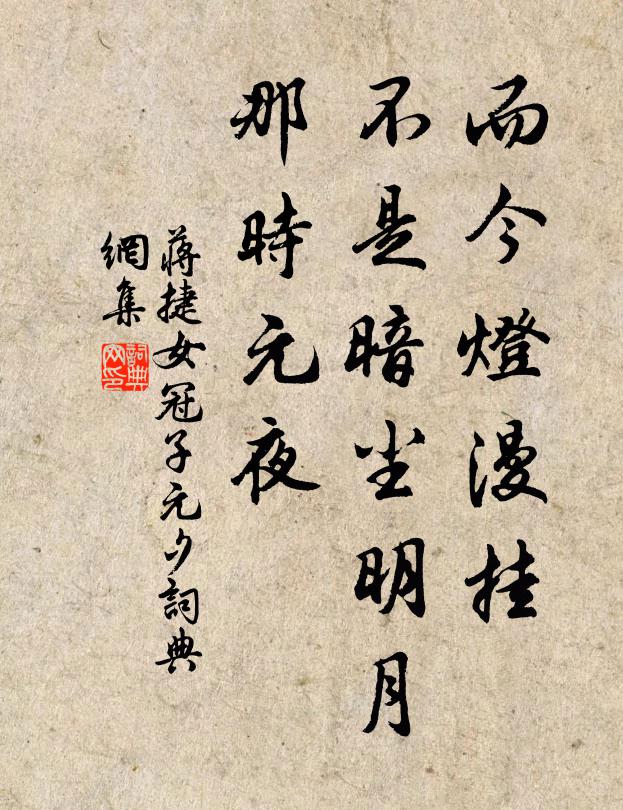 而今燈漫挂
不是暗尘明月
那時元夜
蔣捷女冠子元夕詞典
網集
詞典
网印